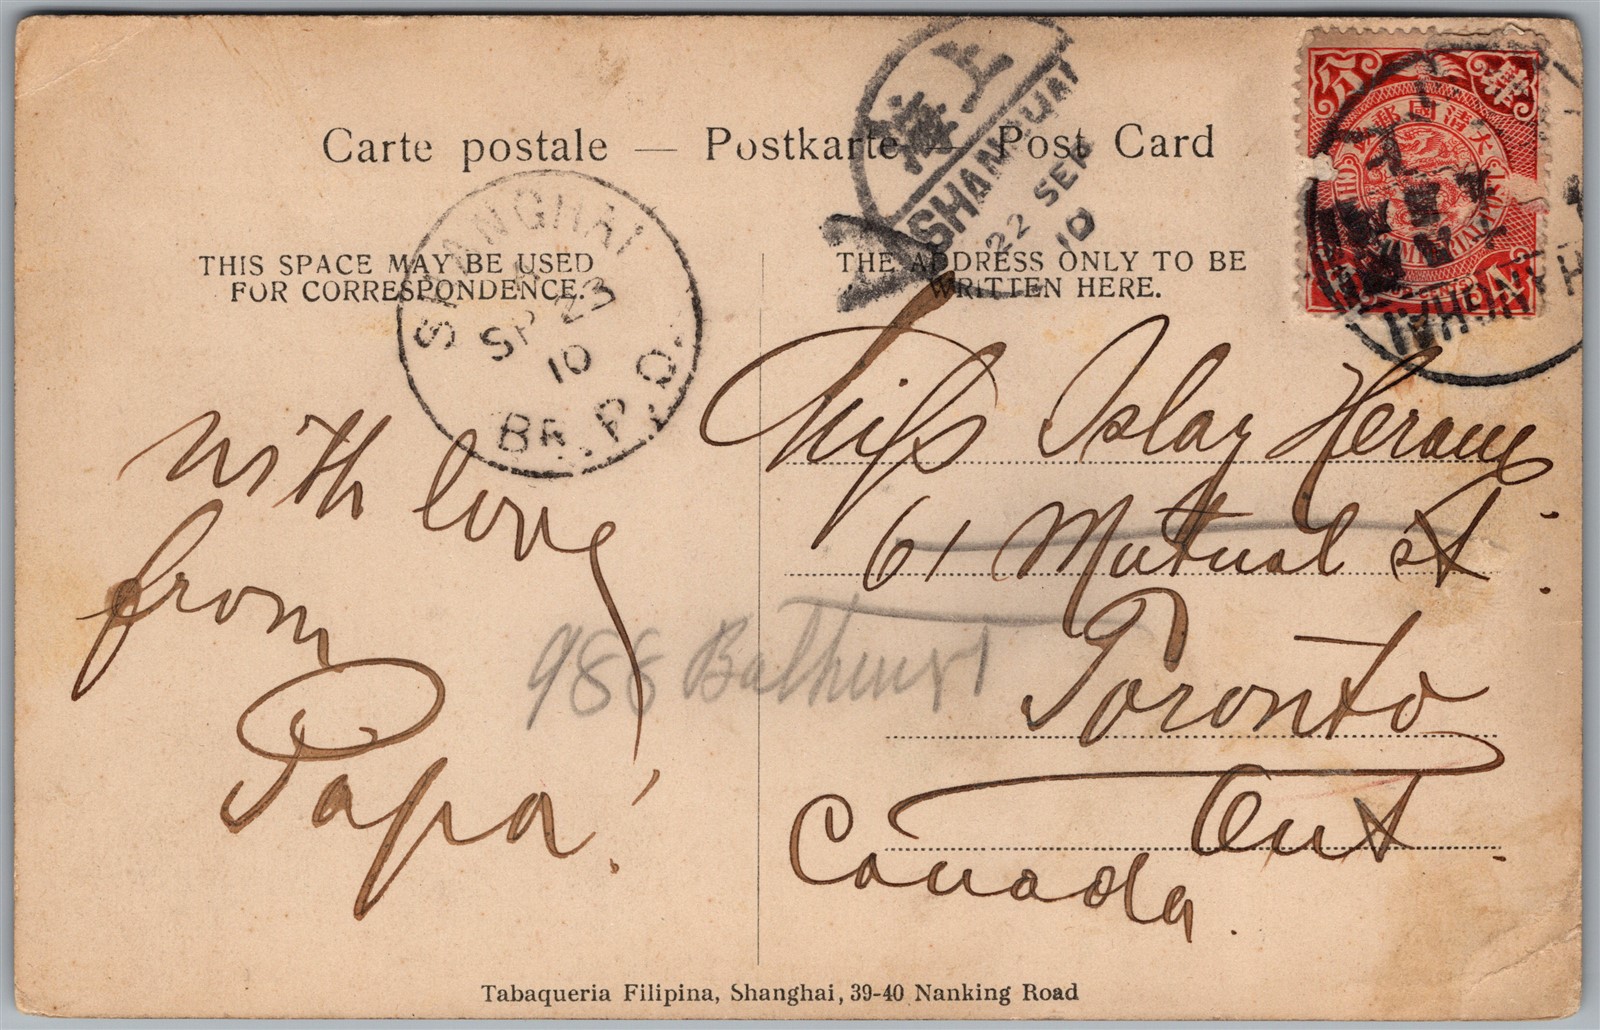 Carte postale — Postkarte — Post Card
上海
SHANGHAI
22 SEP
10
SHANGHAI
SP 23
10
BR. P.O.
THIS SPACE MAY BE USED
FOR CORRESPONDENCE.
THE ADDRESS ONLY TO BE
WRITTEN HERE.
With love
from
Papa!
Miss Islay
61 Mutual St.
Toronto
Ont.
Canada.
988 Bathurst
Tabaqueria Filipina, Shanghai, 39-40 Nanking Road